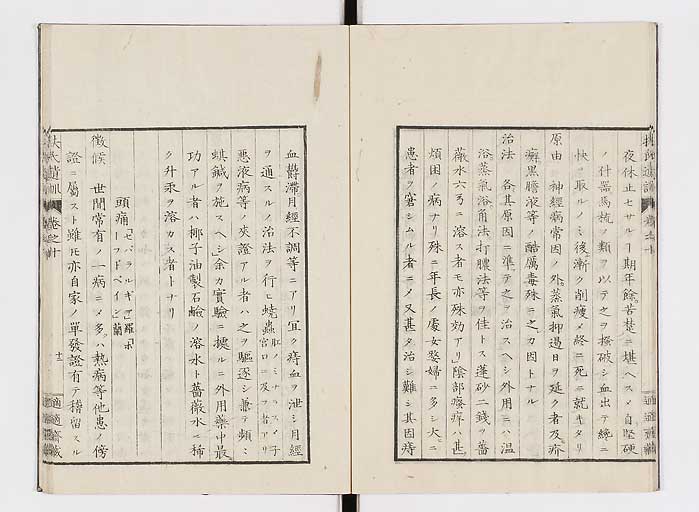 夜休止セサルヿ期年餘苦楚ニ堪ヘスメ自堅硬
ノ什器馬梳ノ類ヲ以テ之ヲ搔破シ血出テ纔ニ
快ヲ取ルノミ後漸ク削瘦メ終ニ死ニ就キタリ
原由 神經病常因ノ外蒸氣抑遏日ヲ延ク者及疥
癬黑膽液等ノ酷厲毒殊ニ之カ因トナル
治法 各其原因ニ準テ之ヲ治スヘシ外用ニハ溫
浴蒸氣浴角法打膿法等ヲ佳トス蓬砂二錢ヲ薔
薇水六ニ溶ス者モ亦殊効アリ陰部瘙痒ハ甚
煩困ノ病ナリ殊ニ年長ノ處女嫠婦ニ多シ大ニ
患者ヲ窘シムル者ニメ又甚タ治シ難シ其因痔
血欝滯月經不調等ニアリ宜ク痔血ヲ泄シ月經
ヲ通スルノ治法ヲ行ヒ蟯蟲肛ノミナラスメ子宮口ニ及フ者アリ
惡液病等ノ夾證アル者ハ之ヲ驅逐シ兼テ頻ニ
蜞鍼ヲ施スヘシ余カ實驗ニ據ルニ外用藥中最
功アル者ハ椰子油製石鹼ノ溶水ト薔薇水ニ稀
ク升汞ヲ溶カス者トナリ
頭痛「セパラルギア」羅「ホーフドペイン」蘭
徵候 世間常有ノ一病ニメ多ハ熱病等他患ノ傍
證ニ屬スト雖モ亦自家ノ單發證有テ稽留スル
扶氏遺訓 卷之十
十二
適適齋藏